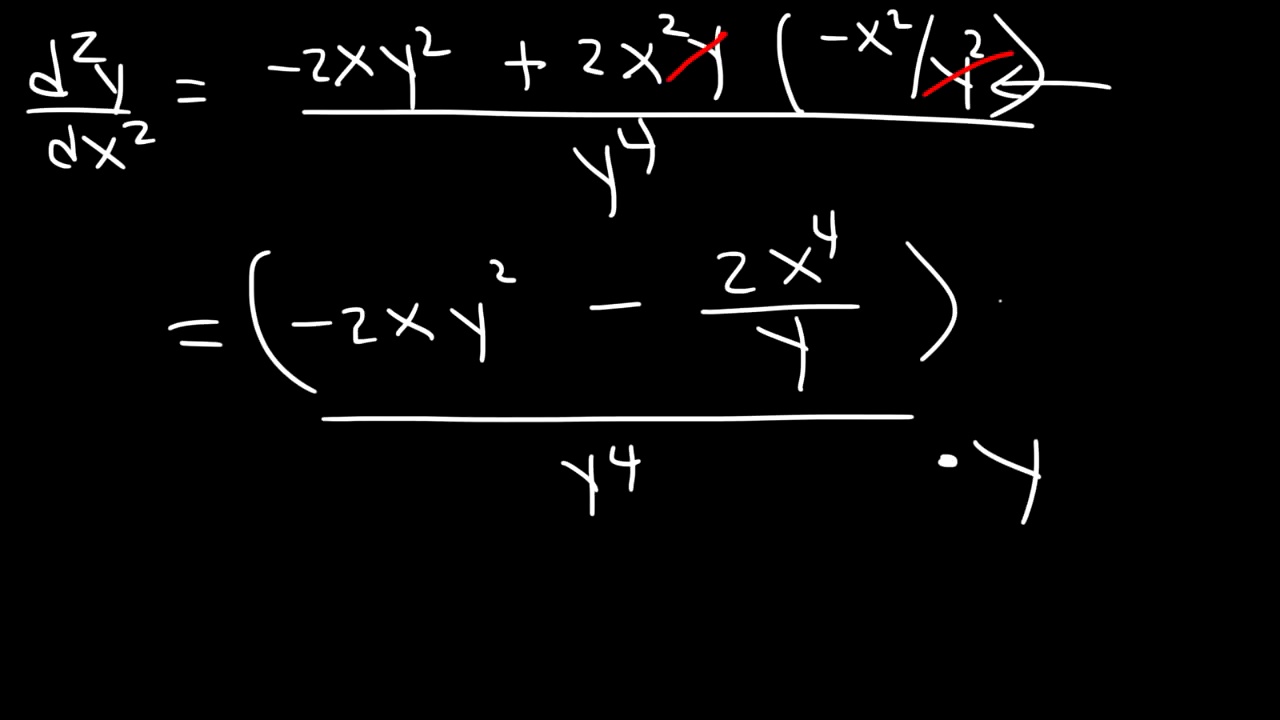 d²y/dx² = (-2xy² + 2x²y (-x²/y²))/y⁴
= (-2xy² - 2x⁴/y)/y⁴ · y